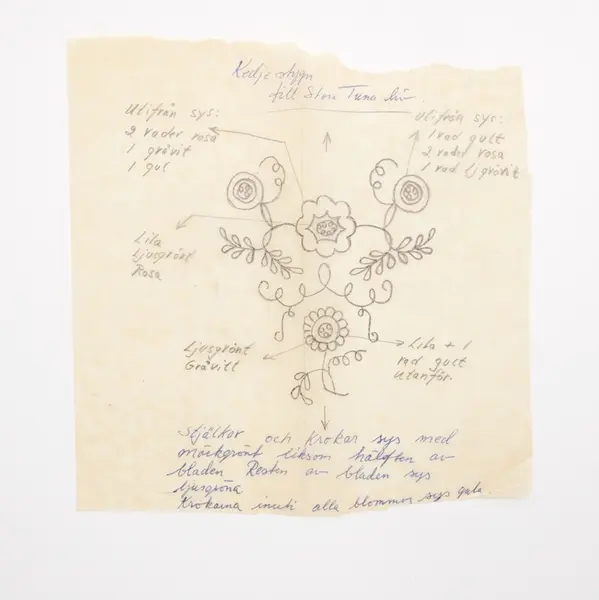 Kedje stygn
till Stora Tuna liv.
Utifrån sys:
2 rader rosa
1 gråvit
1 gul
Utifrån sys:
1 rad gult
2 rader rosa
1 rad lj gråvit
Lila
Ljusgrönt
Rosa
Ljusgrönt
Gråvitt
Lila + 1
rad gult
utanför.
Stjälkar och krokar sys med
mörkgrönt liksom hälften av
bladen Resten av bladen sys
ljusgröna
Krokarna inuti alla blommor sys gula.